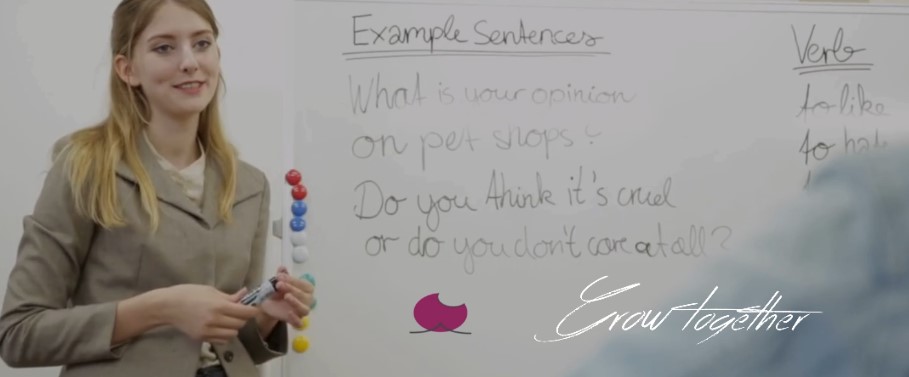 Example Sentences
What is your opinion
on pet shops?
Do you think it's cruel
or do you don't care at all?
Verb
to like
to hat
Grow together